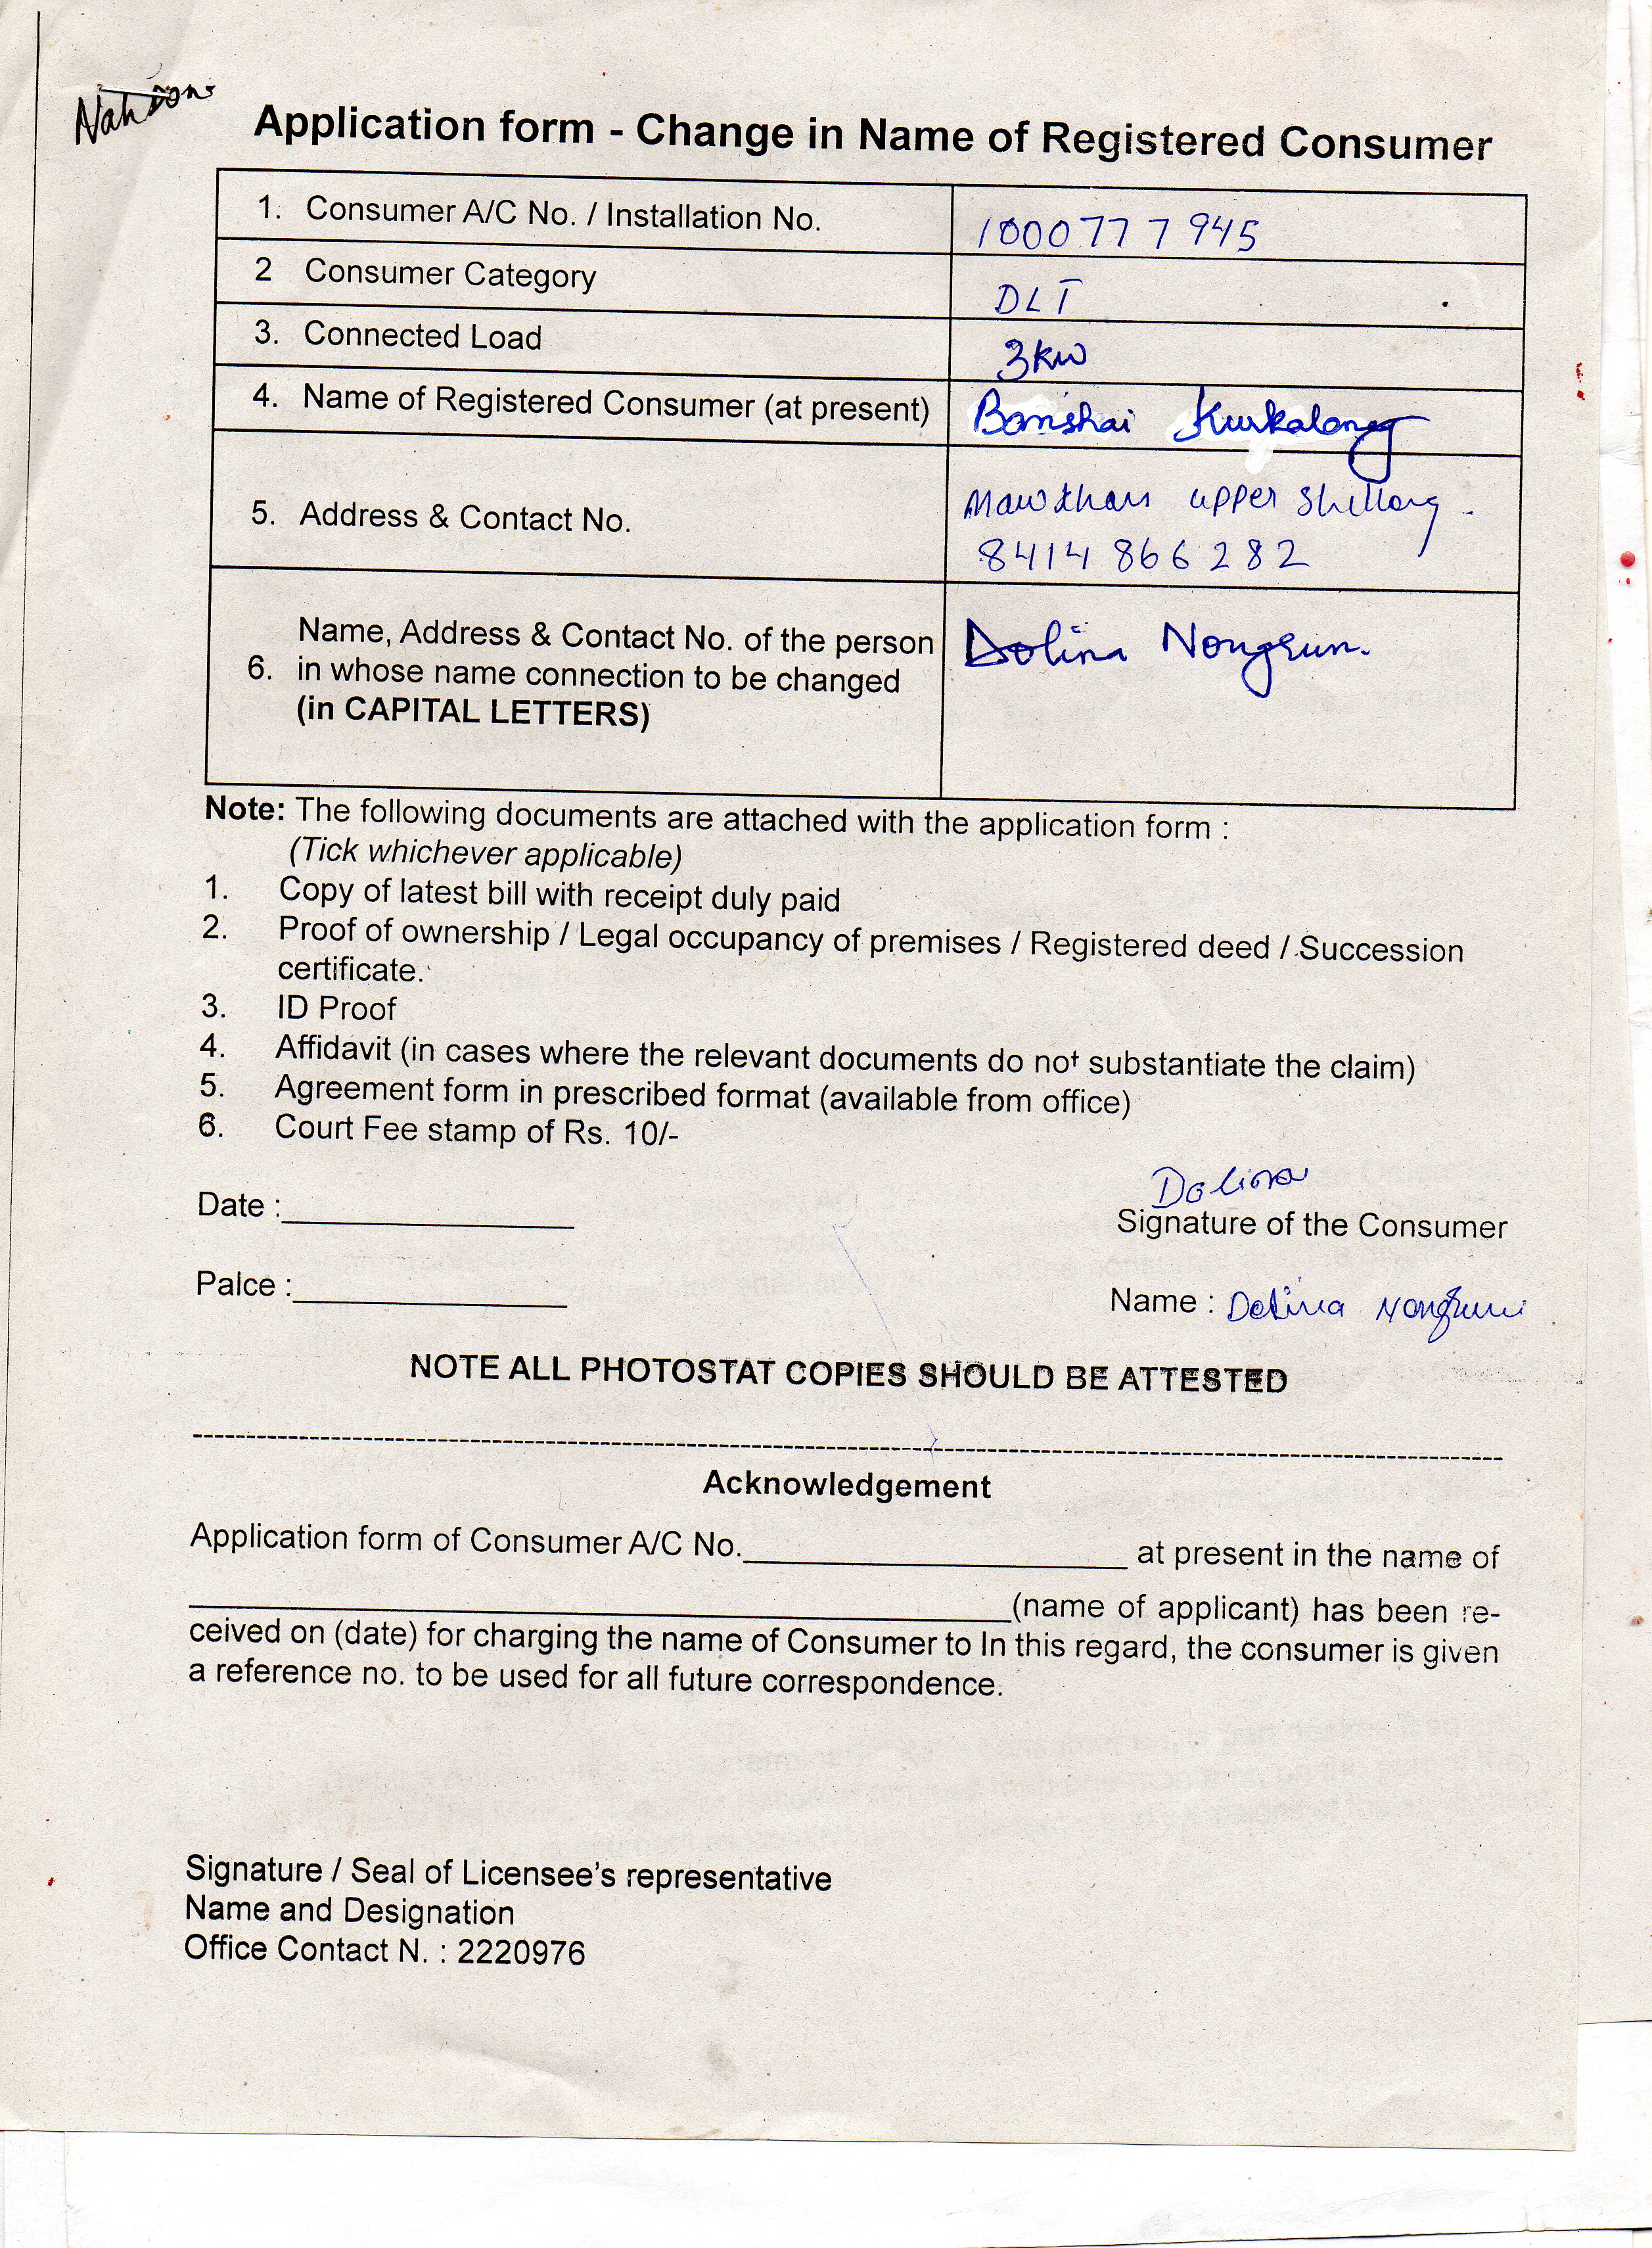 Application form - Change in Name of Registered Consumer
1. Consumer A/C No. / Installation No. 1000777945
2 Consumer Category DLT
3. Connected Load 3KW
4. Name of Registered Consumer (at present) Banshai Kurkalang
5. Address & Contact No. Upper Shillong -
8414866282
Name, Address & Contact No. of the person
6. in whose name connection to be changed
(in CAPITAL LETTERS)
Dolina Nongrum.
Note: The following documents are attached with the application form :
(Tick whichever applicable)
1. Copy of latest bill with receipt duly paid
2. Proof of ownership / Legal occupancy of premises / Registered deed / Succession
certificate.
3. ID Proof
4. Affidavit (in cases where the relevant documents do not substantiate the claim)
5. Agreement form in prescribed format (available from office)
6. Court Fee stamp of Rs. 10/-
Dolina
Date : Signature of the Consumer
Palce : Name : Dolina Nongrum
NOTE ALL PHOTOSTAT COPIES SHOULD BE ATTESTED
Acknowledgement
Application form of Consumer A/C No. at present in the name of
(name of applicant) has been re-
ceived on (date) for charging the name of Consumer to In this regard, the consumer is given
a reference no. to be used for all future correspondence.
Signature / Seal of Licensee's representative
Name and Designation
Office Contact N. : 2220976